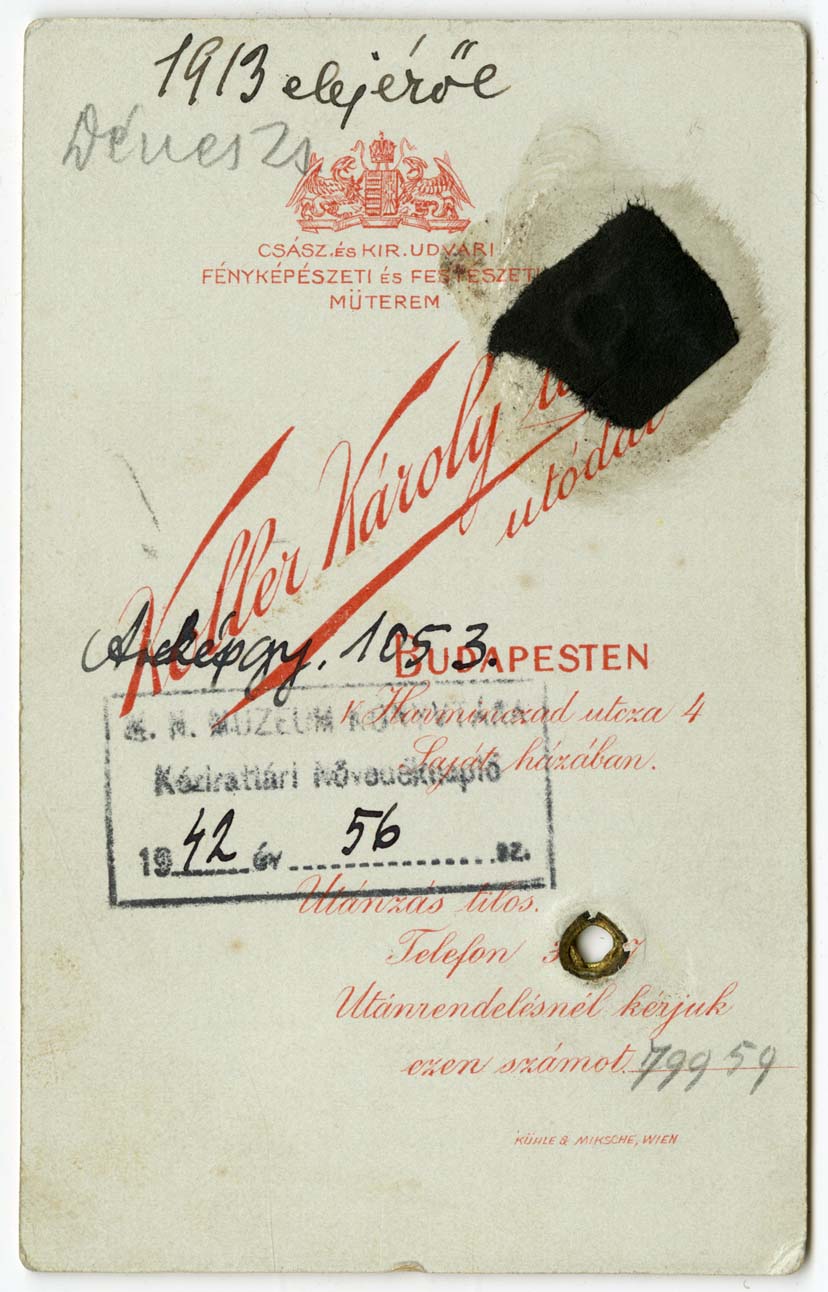 1913 elejéről
Dénes Zs
CSÁSZ. és KIR. UDVARI
FÉNYKÉPÉSZETI és FESTÉSZETI
MÜTEREM
Keller Károly
utódai
Arcképgy. 1053.
BUDAPESTEN
Harminczad utcza 4
Saját házában.
M. N. MÚZEUM KÖNYVTÁRA
Kézirattári Növedéknapló
1942 év 56 sz.
Utánzás tilos.
Telefon
Utánrendelésnél kérjuk
ezen számot. 79959
KÜHLE & MIKSCHE, WIEN